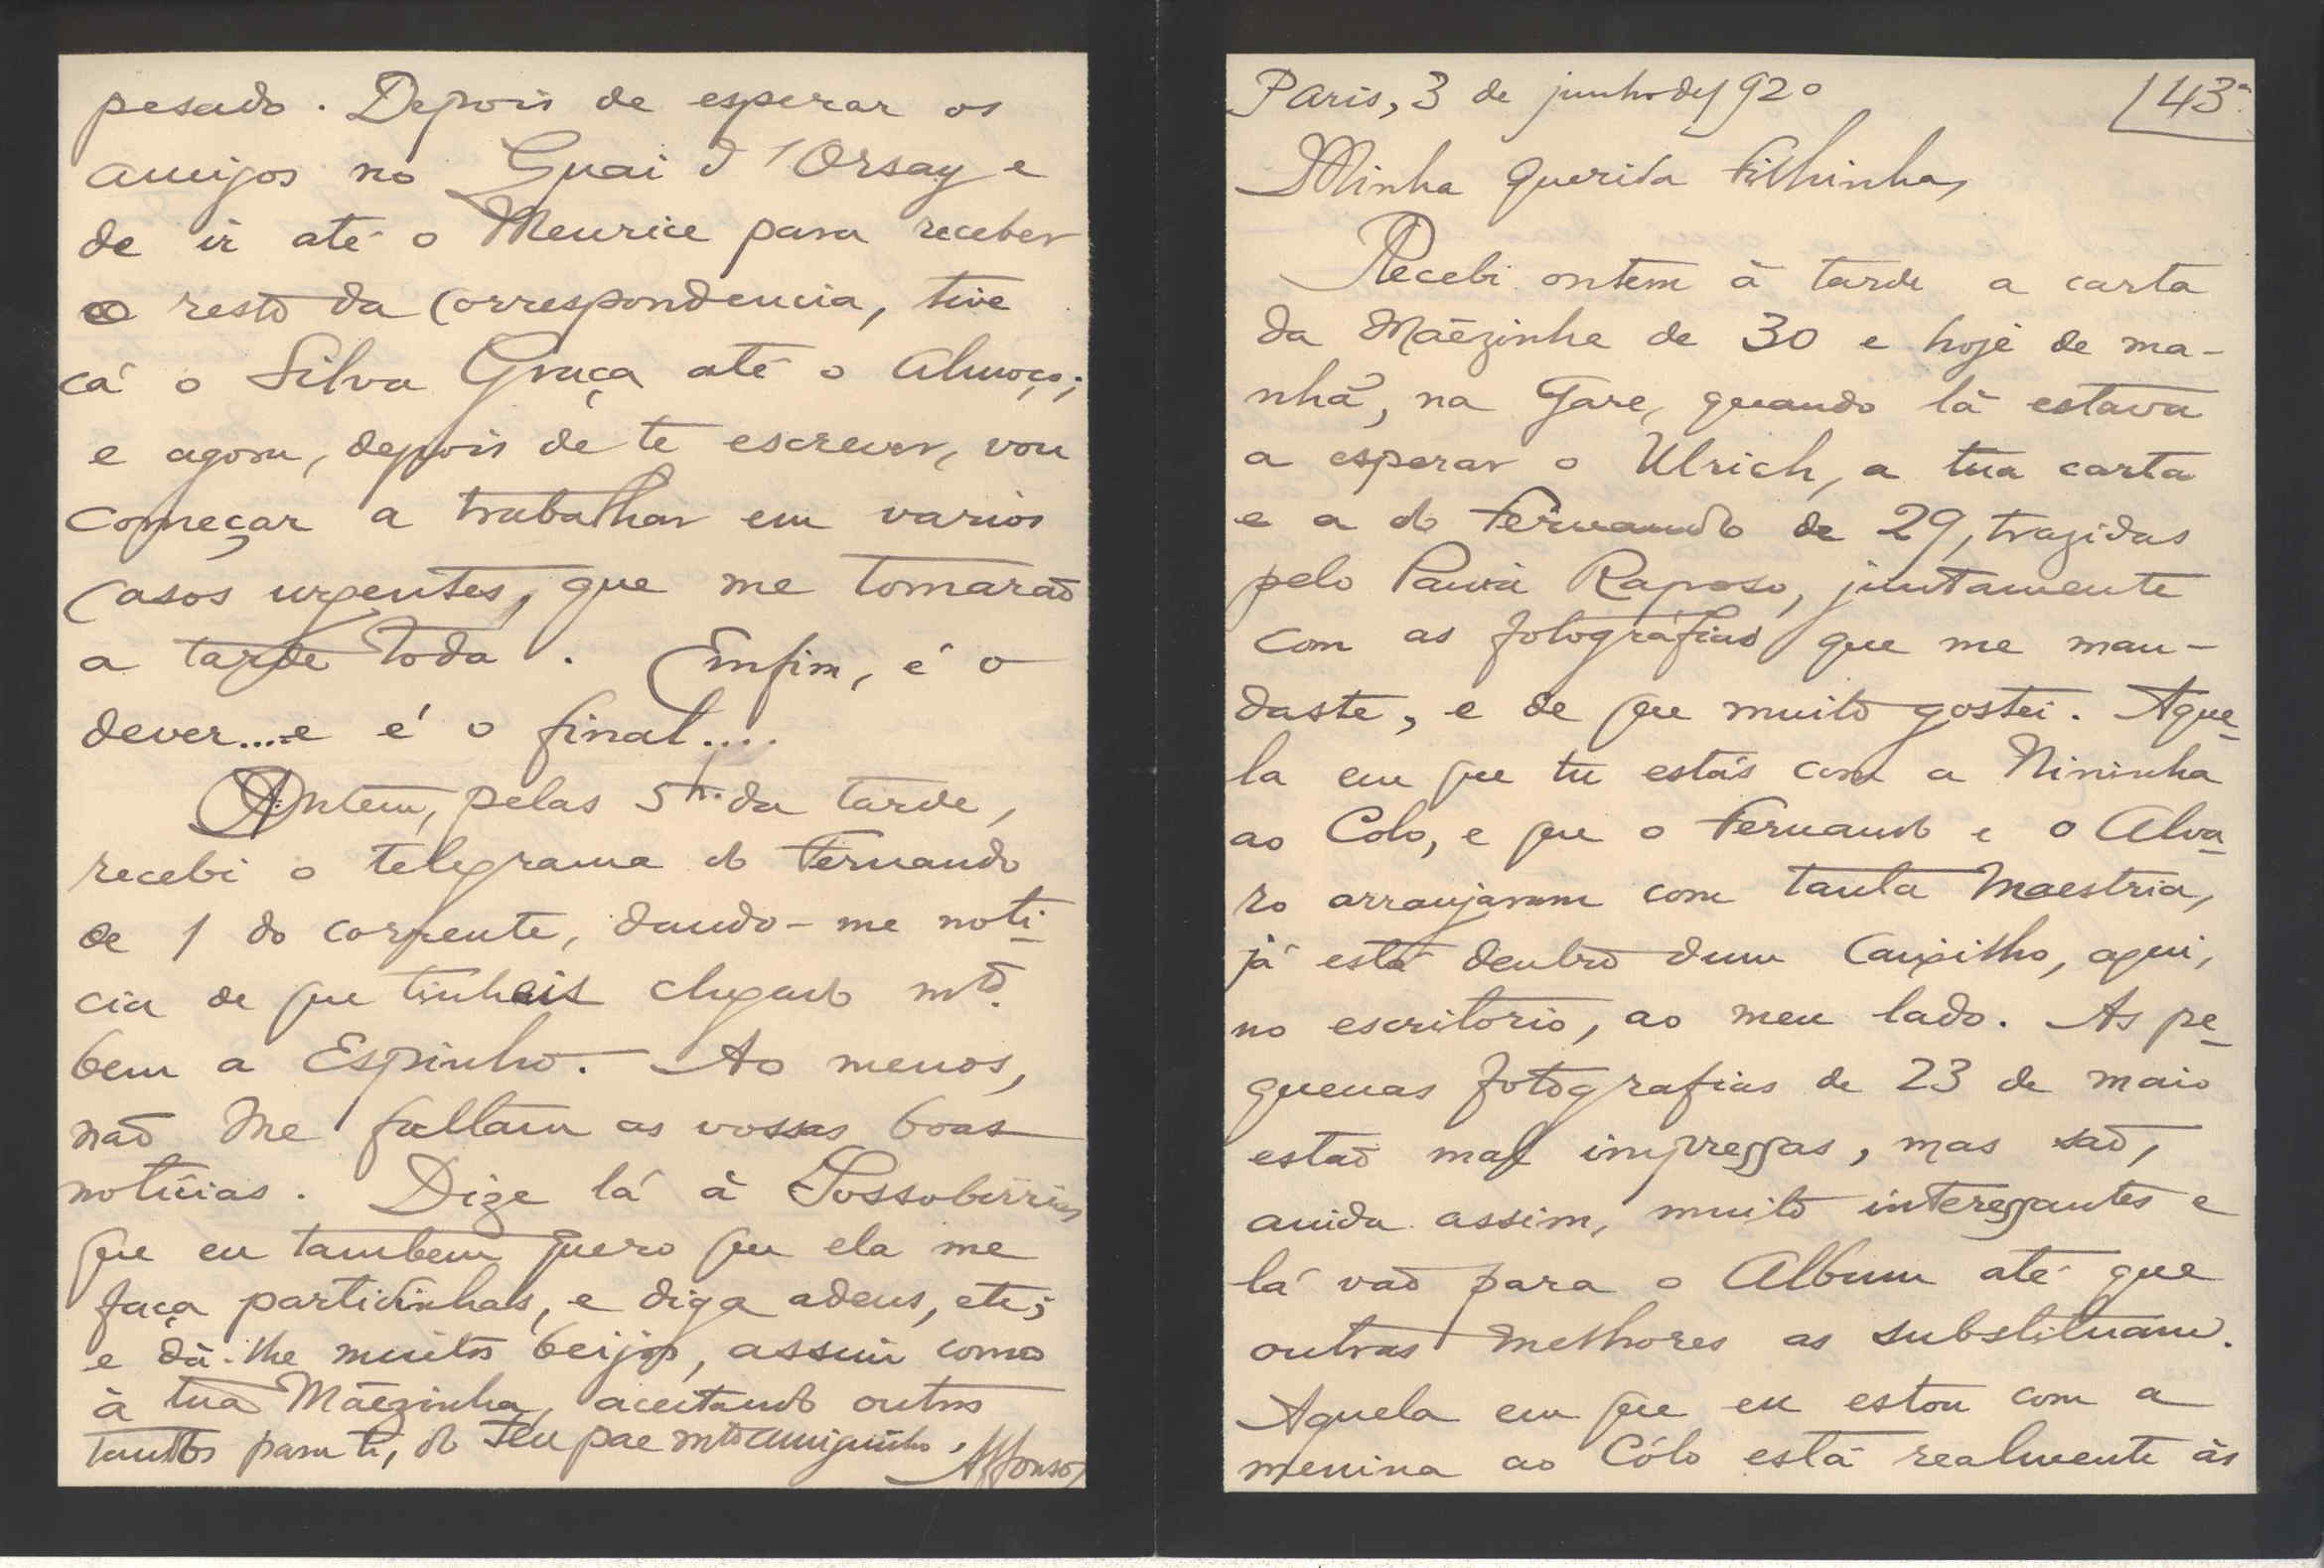 Paris, 3 de junho de 1920
143ª
Minha querida Filhinha,
Recebi ontem à tarde a carta
da Mãezinha de 30 e hoje de ma-
nhã, na Gare, quando lá estava
a esperar o Ulrich, a tua carta
e a do Fernando de 29, trazidas
pelo Paiva Raposo, juntamente
com as fotografias que me man-
daste, e de que muito gostei. Aque-
la em que tu estás com a Nininha
ao Colo, e que o Fernando e o Alva-
ro arranjaram com tanta Maestria,
já está dentro dum Caixilho, aqui,
no escritorio, ao meu lado. As pe-
quenas fotografias de 23 de maio
estão mal impressas, mas são,
ainda assim, muito interessantes e
lá vão para o Album até que
outras melhores as substituam.
Aquela em que eu estou com a
menina ao Cólo está realmente às
pesado. Depois de esperar os
amigos no Quai d'Orsay e
de ir até o Meurice para receber
o resto da Correspondencia, tive
cá o Silva Graça até o Almoço;
e agora, depois de te escrever, vou
começar a trabalhar em varios
casos urgentes, que me tomarão
a tarde toda. Emfim, é o
dever.... e é o final....
Ontem, pelas 5 h. da tarde,
recebi o telegrama do Fernando
de 1 do corrente, dando-me noti-
cia de que tinheis chegado mtº.
bem a Espinho. Ao menos,
não me faltam as vossas boas
noticias. Dize lá à
que eu tambem quero que ela me
faça partidinhas, e diga adeus, etc;
e dá-lhe muitos beijos, assim como
à tua Mãezinha, aceitando outros
tantos para ti, do teu pae mtº amiguinho,
Affonso